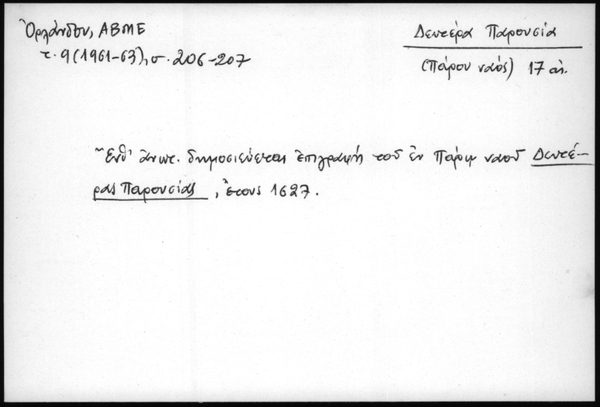 Ὀρλάνδου, ΑΒΜΕ
τ. 9 (1961-63), σ. 206-207
Δευτέρα Παρουσία
(Πάρου ναός) 17 αἰ.
Ἔνθ' ἀνωτ. δημοσιεύεται ἐπιγραφή τοῦ ἐν Πάρῳ ναοῦ Δευτέ-
ρας Παρουσίας, ἔτους 1627.